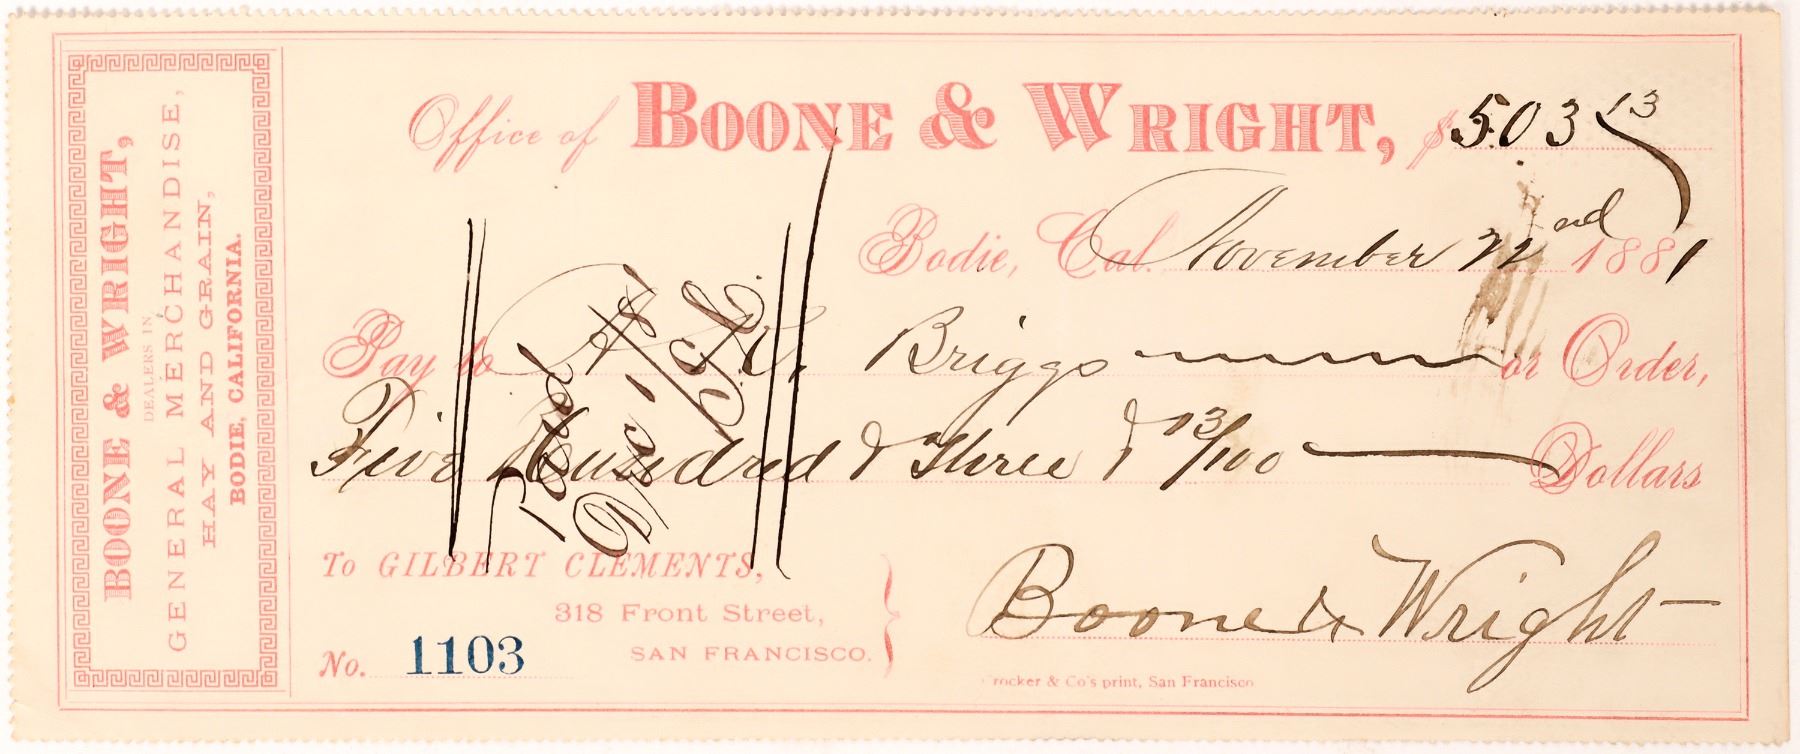 BOONE & WRIGHT,
DEALERS IN
GENERAL MERCHANDISE,
HAY AND GRAIN,
BODIE, CALIFORNIA.
Office of BOONE & WRIGHT, $ 503 13
Bodie, Cal. November 22nd 1881
Pay to Briggs or Order,
Five Hundred & Three & 13/100 Dollars
Paid
TO GILBERT CLEMENTS,
318 Front Street,
SAN FRANCISCO.
No. 1103
Boone & Wright
Crocker & Co's print, San Francisco